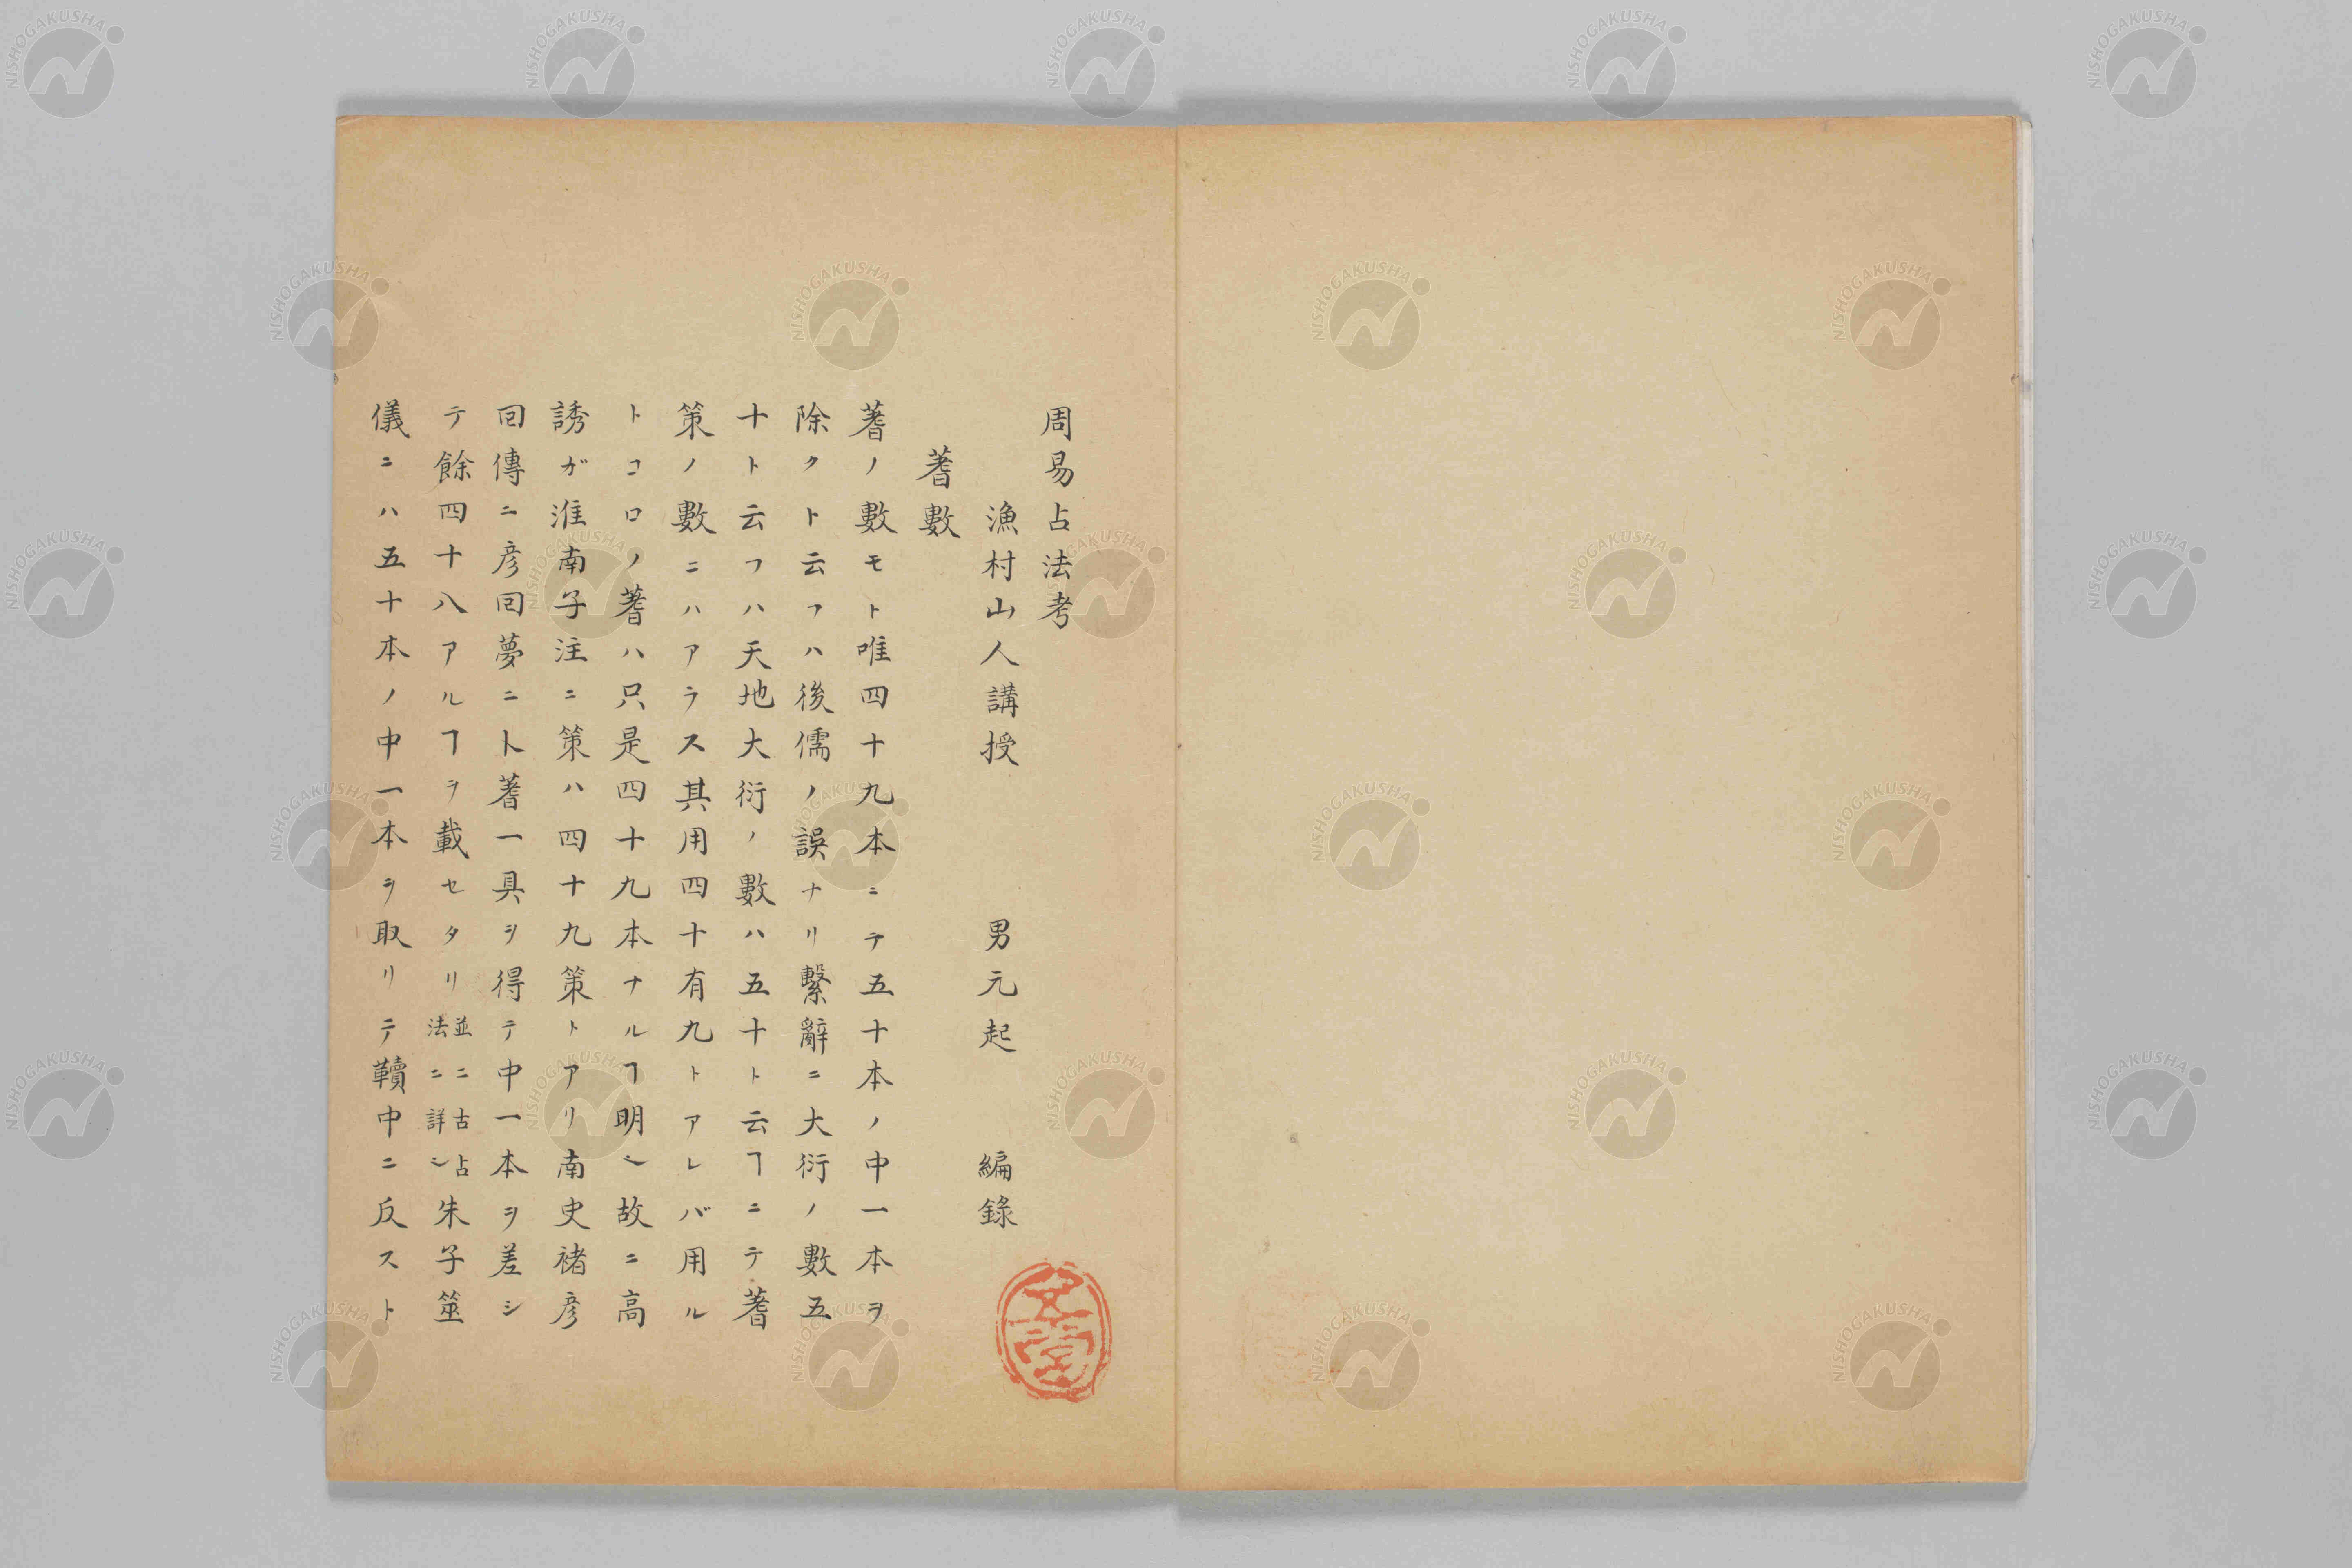 周易占法考
漁村山人講授 男元起 編錄
蓍數
蓍ノ數モト唯四十九本ニテ五十本ノ中一本ヲ
除クト云フハ後儒ノ誤ナリ繫辭ニ大衍ノ數五
十ト云フハ天地大衍ノ數ハ五十ト云ヿニテ蓍
策ノ數ニハアラス其用四十有九トアレバ用ル
トコロノ蓍ハ只是四十九本ナルヿ明シ故ニ高
誘ガ淮南子注ニ策ハ四十九策トアリ南史褚彦
回傳ニ彦回夢ニ卜蓍一具ヲ得テ中一本ヲ差シ
テ餘四十八アルヿヲ載セタリ並ニ古占法ニ詳シ朱子筮
儀ニハ五十本ノ中一本ヲ取リテ韇中ニ反スト
NISHOGAKUSHA